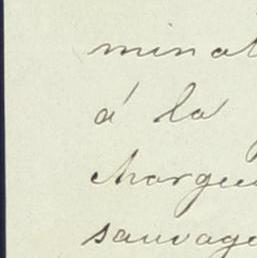 minat
á la
chargeu
sauvage